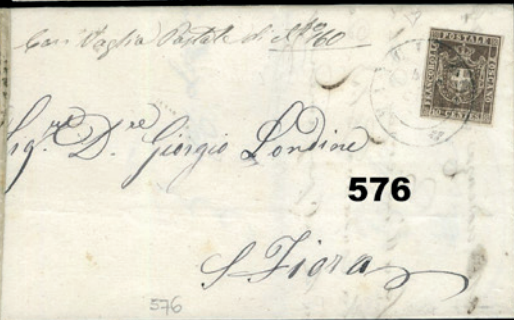 Con Vaglia Postale di
FRANCOBOLLO POSTALE TOSCANO
10 CENT
Sig.re D.re Giorgio Londine
576
S. Figra
576